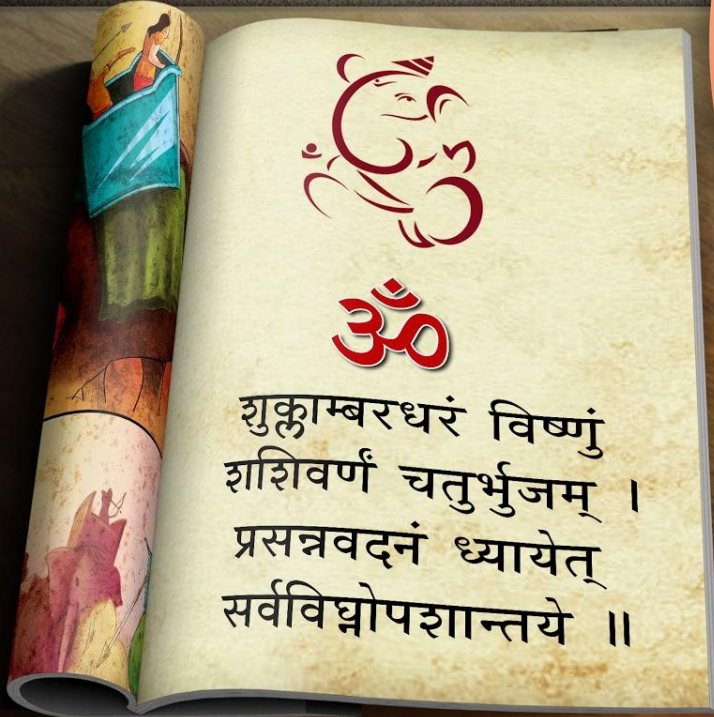 ॐ
शुक्लाम्बरधरं विष्णुं
शशिवर्णं चतुर्भुजम् ।
प्रसन्नवदनं ध्यायेत्
सर्वविघ्नोपशान्तये ॥